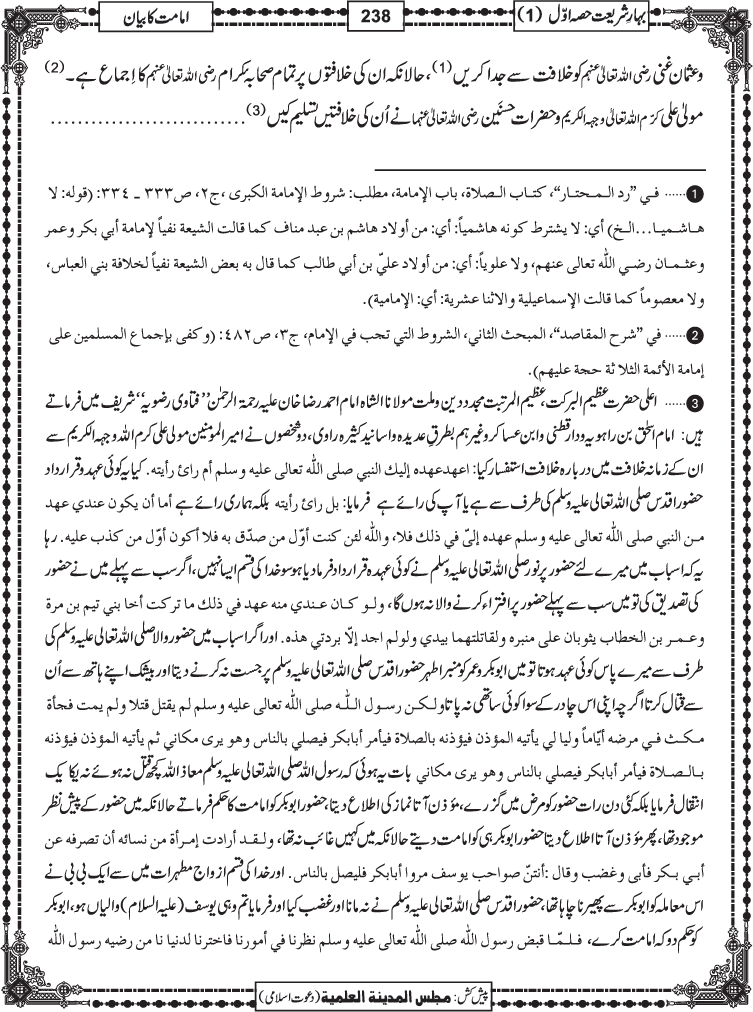 بہارِ شریعت حصہ اوّل (1)
238
امامت کا بیان
و عثمان غنی رضی اللہ تعالیٰ عنہم کو خلافت سے جدا کریں (1)، حالانکہ ان کی خلافتوں پر تمام صحابۂ کرام رضی اللہ تعالیٰ عنہم کا اِجماع ہے۔ (2)
مولیٰ علی کرّم اللہ تعالیٰ وجہہ الکریم و حضرات حسنَین رضی اللہ تعالیٰ عنہما نے اُن کی خلافتیں تسلیم کیں (3)............................
1...... فـي ”رد الـمـحتـار“، كتـاب الـصلاة، باب الإمامة، مطلب: شروط الإمامة الكبرى ،ج٢، ص٣٣٣ ـ ٣٣٤: (قوله: لا
هـاشـميـا...الـخ) أي: لا يشترط كونه هاشمياً: أي: من أولاد هاشم بن عبد مناف كما قالت الشيعة نفياً لإمامة أبي بكر وعمر
وعثـمـان رضـي اللّٰه تعالى عنهم، ولا علوياً: أي: من أولاد عليّ بن أبي طالب كما قال به بعض الشيعة نفياً لخلافة بني العباس،
ولا معصوماً كما قالت الإسماعيلية والاثنا عشرية: أي: الإمامية).
2...... في ”شرح المقاصد“، المبحث الثاني، الشروط التي تجب في الإمام، ج٣، ص٤٨٢: (وكفى بإجماع المسلمين على
إمامة الأئمة الثلاثة حجة عليهم).
3...... اعلیٰ حضرت عظیم البرکت، عظیم المرتبت مجدد دین وملت مولانا الشاہ امام احمد رضا خان علیہ رحمۃ الرحمٰن ”فتاوی رضویہ“ شریف میں فرماتے
ہیں: امام اسحٰق بن راہویہ و دارقطنی و ابن عساکر وغیرہم بطرقِ عدیدہ و اسانید کثیرہ راوی، دو شخصوں نے امیر المؤمنین مولیٰ علی کرم اللہ وجہہ الکریم سے
ان کے زمانہ خلافت میں دربارہ خلافت استفسار کیا: اعهدعهده إليك النبي صلى اللّٰه تعالى عليه وسلم أم رائ رأيته. کیا یہ کوئی عہد و قرارداد
حضور اقدس صلی اللہ تعالیٰ علیہ وسلم کی طرف سے ہے یا آپ کی رائے ہے فرمایا: بل رائ رأيته بلکہ ہماری رائے ہے أما أن يكون عندي عهد
مـن النبي صلى اللّٰه تعالى عليه وسلم عهده إليّ في ذلك فلا، واللّٰه لئن كنت أوّل من صدّق به فلا أكون أوّل من كذب عليه. رہا
یہ کہ اسباب میں میرے لئے حضور پرنور صلی اللہ تعالیٰ علیہ وسلم نے کوئی عہدہ قرارداد فرما دیا ہو سو خدا کی قسم ایسا نہیں، اگر سب سے پہلے میں نے حضور
کی تصدیق کی تو میں سب سے پہلے حضور پر افتراء کرنے والا نہ ہوں گا، ولـو كـان عـنـدي منه عهد في ذلك ما تركت أخا بني تيم بن مرة
وعـمـر بن الخطاب يثوبان على منبره ولقاتلتهما بيدي ولولم اجد إلّا بردتي هذه. اور اگر اسباب میں حضور والا صلی اللہ تعالیٰ علیہ وسلم کی
طرف سے میرے پاس کوئی عہد ہوتا تو میں ابوبکر وعمر کو منبر اطہر حضور اقدس صلی اللہ تعالیٰ علیہ وسلم پر جست نہ کرنے دیتا اور بیشک اپنے ہاتھ سے اُن
سے قتال کرتا اگرچہ اپنی اس چادر کے سوا کوئی ساتھی نہ پاتا ولـكـن رسـول اللّٰـه صلى اللّٰه تعالى عليه وسلم لم يقتل قتلا ولم يمت فجأة
مـكـث فـي مرضه أيّاماً وليا لي يأتيه المؤذن فيؤذنه بالصلاة فيأمر أبابكر فيصلي بالناس وهو يرى مكاني ثم يأتيه المؤذن فيؤذنه
بـالـصـلاة فيأمر أبابكر فيصلي بالناس وهو يرى مكاني بات یہ ہوئی کہ رسول اللہ صلی اللہ تعالیٰ علیہ وسلم معاذ اللہ کچھ قتل نہ ہوئے نہ یکایک
انتقال فرمایا بلکہ کئی دن رات حضور کو مرض میں گزرے، مؤذن آتا نماز کی اطلاع دیتا، حضور ابوبکر کو امامت کا حکم فرماتے حالانکہ میں حضور کے پیش نظر
موجود تھا، پھر مؤذن آتا اطلاع دیتا حضور ابوبکر ہی کو امامت دیتے حالانکہ میں کہیں غائب نہ تھا، ولـقـد أرادت إمـرأة من نسائه أن تصرفه عن
أبـي بـكر فأبى وغضب وقال :أنتنّ صواحب يوسف مروا أبابكر فليصل بالناس. اور خدا کی قسم ازواجِ مطہرات میں سے ایک بی بی نے
اس معاملہ کو ابوبکر سے پھیرنا چاہا تھا، حضور اقدس صلی اللہ تعالیٰ علیہ وسلم نے نہ مانا اور غضب کیا اور فرمایا تم وہی یوسف (علیہ السلام) والیاں ہو، ابوبکر
کو حکم دو کہ امامت کرے، فـلـمّـا قبض رسول اللّٰه صلى اللّٰه تعالى عليه وسلم نظرنا في أمورنا فاخترنا لدنيا نا من رضيه رسول اللّٰه
پیش کش: مجلس المدینۃ العلمیۃ (دعوت اسلامی)